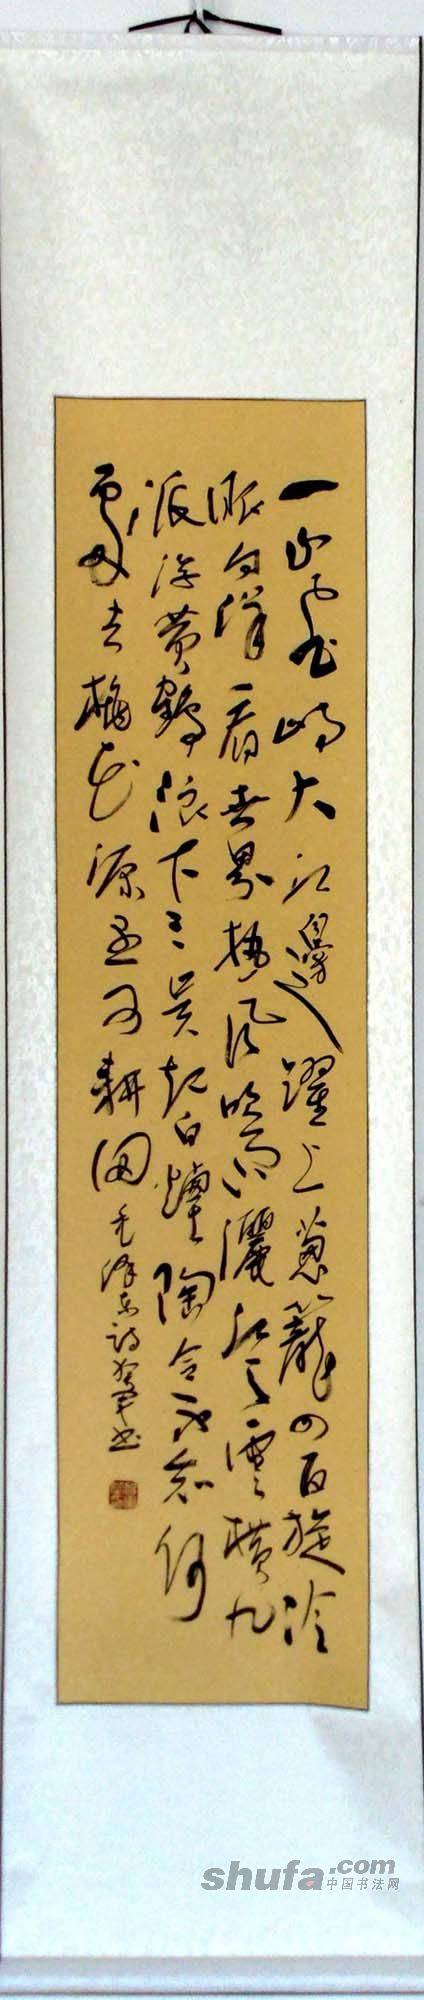 一山飛峙大江邊躍上葱籠四百旋冷
眼向洋看世界熱風吹雨灑江天雲橫九
派浮黄鶴浪下三吴起白煙陶令不知何
處去桃花源里可耕田 毛泽东诗 书
shufa.com
中国书法网